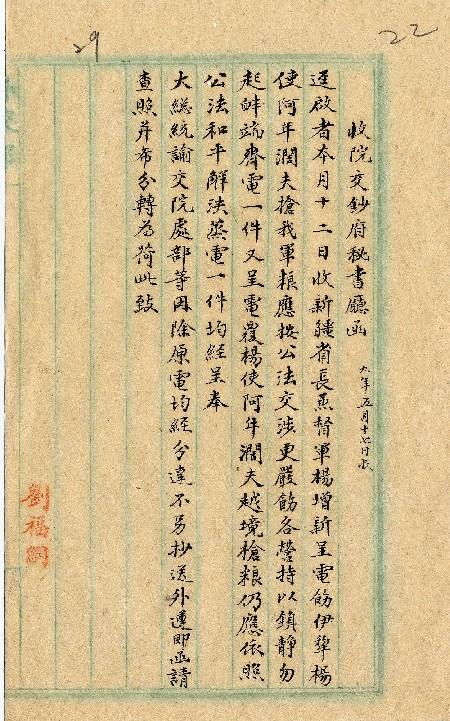 22
29
收院交鈔府秘書廳函
九年五月十七日收
逕啟者本月十二日收新疆省長兼督軍楊增新呈電飭伊犂楊
使阿年濶夫搶我軍粮應按公法交涉更嚴飭各營持以鎮靜勿
起衅端齊電一件又呈電覆楊使阿年濶夫越境搶粮仍應依照
公法和平解決蒸電一件均經呈奉
大總統諭交院處部等因除原電均經分達不另抄送外運即函請
查照并希分轉為荷此致
劉福綱